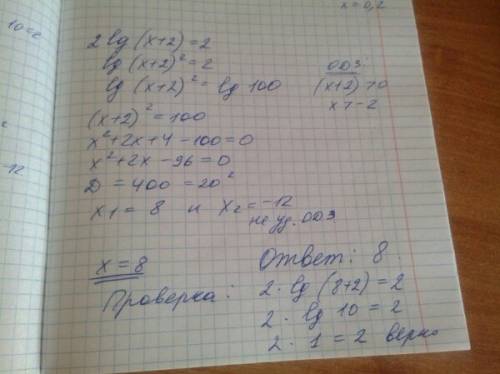 x = 0,2
2 lg (x+2) = 2
lg (x+2)² = 2
lg (x+2)² = lg 100
(x+2)² = 100
x²+2x+4-100=0
x²+2x-96=0
D = 400 = 20²
x1 = 8 и x2 = -12
не уд. ОДЗ
ОДЗ:
(x+2)>0
x>-2
x = 8
Ответ: 8.
Проверка:
2 · lg (8+2) = 2
2 · lg 10 = 2
2 · 1 = 2 верно
-12